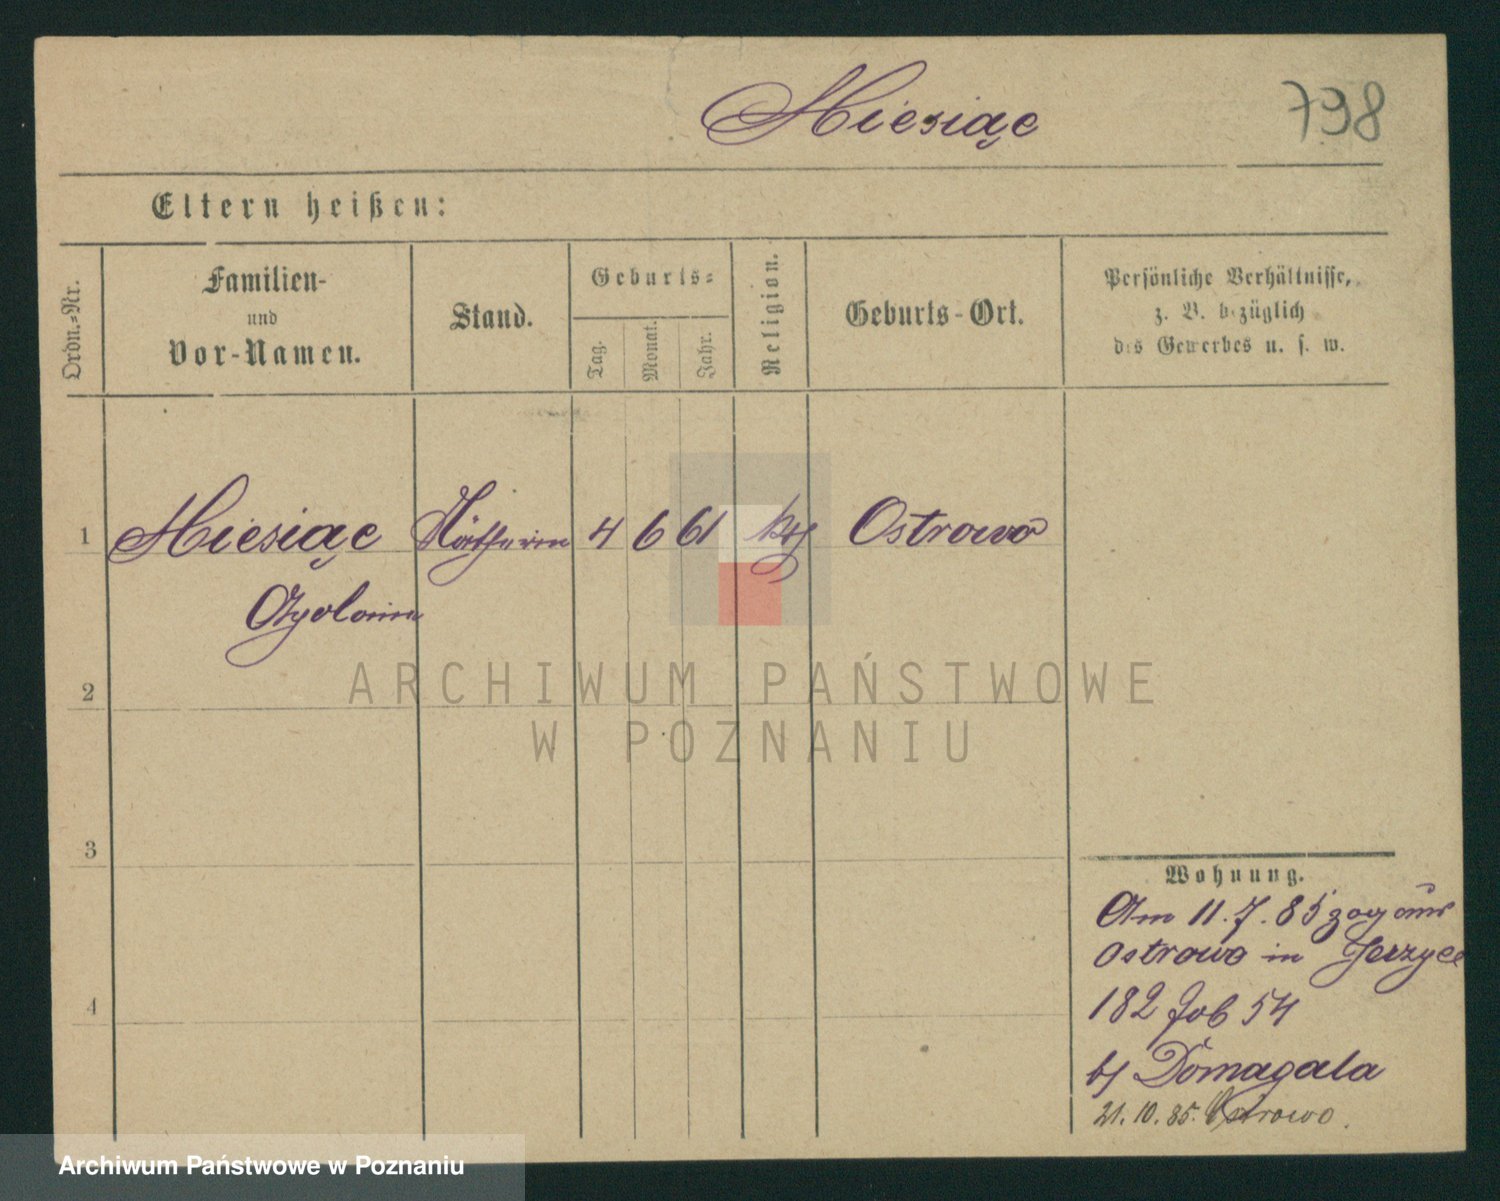 Miesiąc
798
Eltern heißen:
Ordn.-Nr.
Familien-
und
Vor-Namen.
Stand.
Geburts-
Tag.
Monat.
Jahr.
Religion.
Geburts-Ort.
Persönliche Verhältnisse,
z. B. bezüglich
des Gewerbes u. s. w.
1 Miesiąc Nätherin 4 6 61 kth Ostrowo
2
3
4
Wohnung.
Am 11.7.85 zog aus
Ostrowo in Jerzyce
182 Job 54
bj Domagala
21.10.85. Ostrowo.
ARCHIWUM PAŃSTWOWE
W POZNANIU
Archiwum Państwowe w Poznaniu